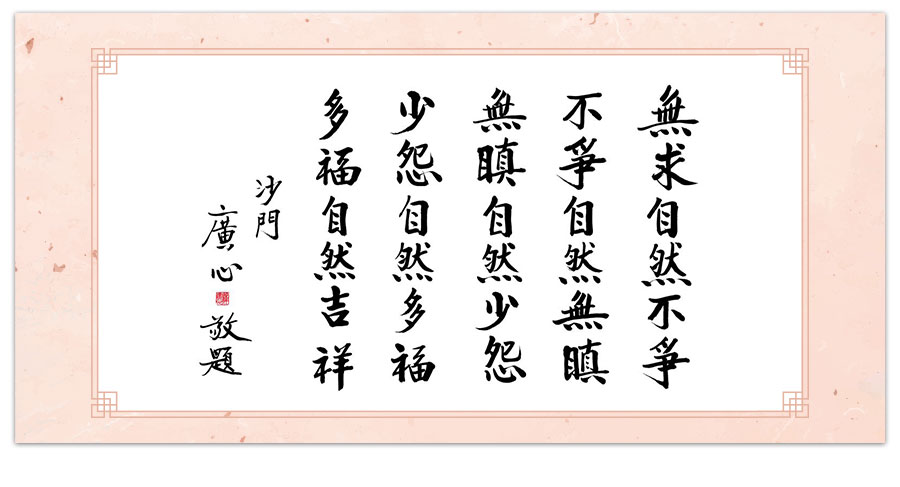 無求自然不爭
不爭自然無瞋
無瞋自然少怨
少怨自然多福
多福自然吉祥
沙門
廣心 敬題